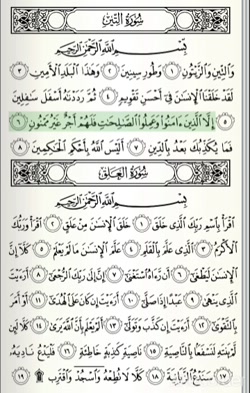 سُورَةُ التِّينِ
بِسْمِ اللَّهِ الرَّحْمَٰنِ الرَّحِيمِ
وَالتِّينِ وَالزَّيْتُونِ ١ وَطُورِ سِينِينَ ٢ وَهَٰذَا الْبَلَدِ الْأَمِينِ ٣
لَقَدْ خَلَقْنَا الْإِنسَٰنَ فِي أَحْسَنِ تَقْوِيمٍ ٤ ثُمَّ رَدَدْنَٰهُ أَسْفَلَ سَٰفِلِينَ
٥ إِلَّا الَّذِينَ ءَامَنُوا وَعَمِلُوا الصَّٰلِحَٰتِ فَلَهُمْ أَجْرٌ غَيْرُ مَمْنُونٍ ٦
فَمَا يُكَذِّبُكَ بَعْدُ بِالدِّينِ ٧ أَلَيْسَ اللَّهُ بِأَحْكَمِ الْحَٰكِمِينَ ٨
سُورَةُ الْعَلَقِ
بِسْمِ اللَّهِ الرَّحْمَٰنِ الرَّحِيمِ
اقْرَأْ بِاسْمِ رَبِّكَ الَّذِي خَلَقَ ١ خَلَقَ الْإِنسَٰنَ مِنْ عَلَقٍ ٢ اقْرَأْ وَرَبُّكَ
الْأَكْرَمُ ٣ الَّذِي عَلَّمَ بِالْقَلَمِ ٤ عَلَّمَ الْإِنسَٰنَ مَا لَمْ يَعْلَمْ ٥ كَلَّا إِنَّ
الْإِنسَٰنَ لَيَطْغَىٰ ٦ أَن رَّءَاهُ اسْتَغْنَىٰ ٧ إِنَّ إِلَىٰ رَبِّكَ الرُّجْعَىٰ ٨ أَرَءَيْتَ
الَّذِي يَنْهَىٰ ٩ عَبْدًا إِذَا صَلَّىٰ ١٠ أَرَءَيْتَ إِن كَانَ عَلَى الْهُدَىٰ ١١ أَوْ أَمَرَ
بِالتَّقْوَىٰ ١٢ أَرَءَيْتَ إِن كَذَّبَ وَتَوَلَّىٰ ١٣ أَلَمْ يَعْلَم بِأَنَّ اللَّهَ يَرَىٰ ١٤ كَلَّا لَئِن
لَّمْ يَنتَهِ لَنَسْفَعًا بِالنَّاصِيَةِ ١٥ نَاصِيَةٍ كَٰذِبَةٍ خَاطِئَةٍ ١٦ فَلْيَدْعُ نَادِيَهُ
١٧ سَنَدْعُ الزَّبَانِيَةَ ١٨ كَلَّا لَا تُطِعْهُ وَاسْجُدْ وَاقْتَرِب ۩ ١٩